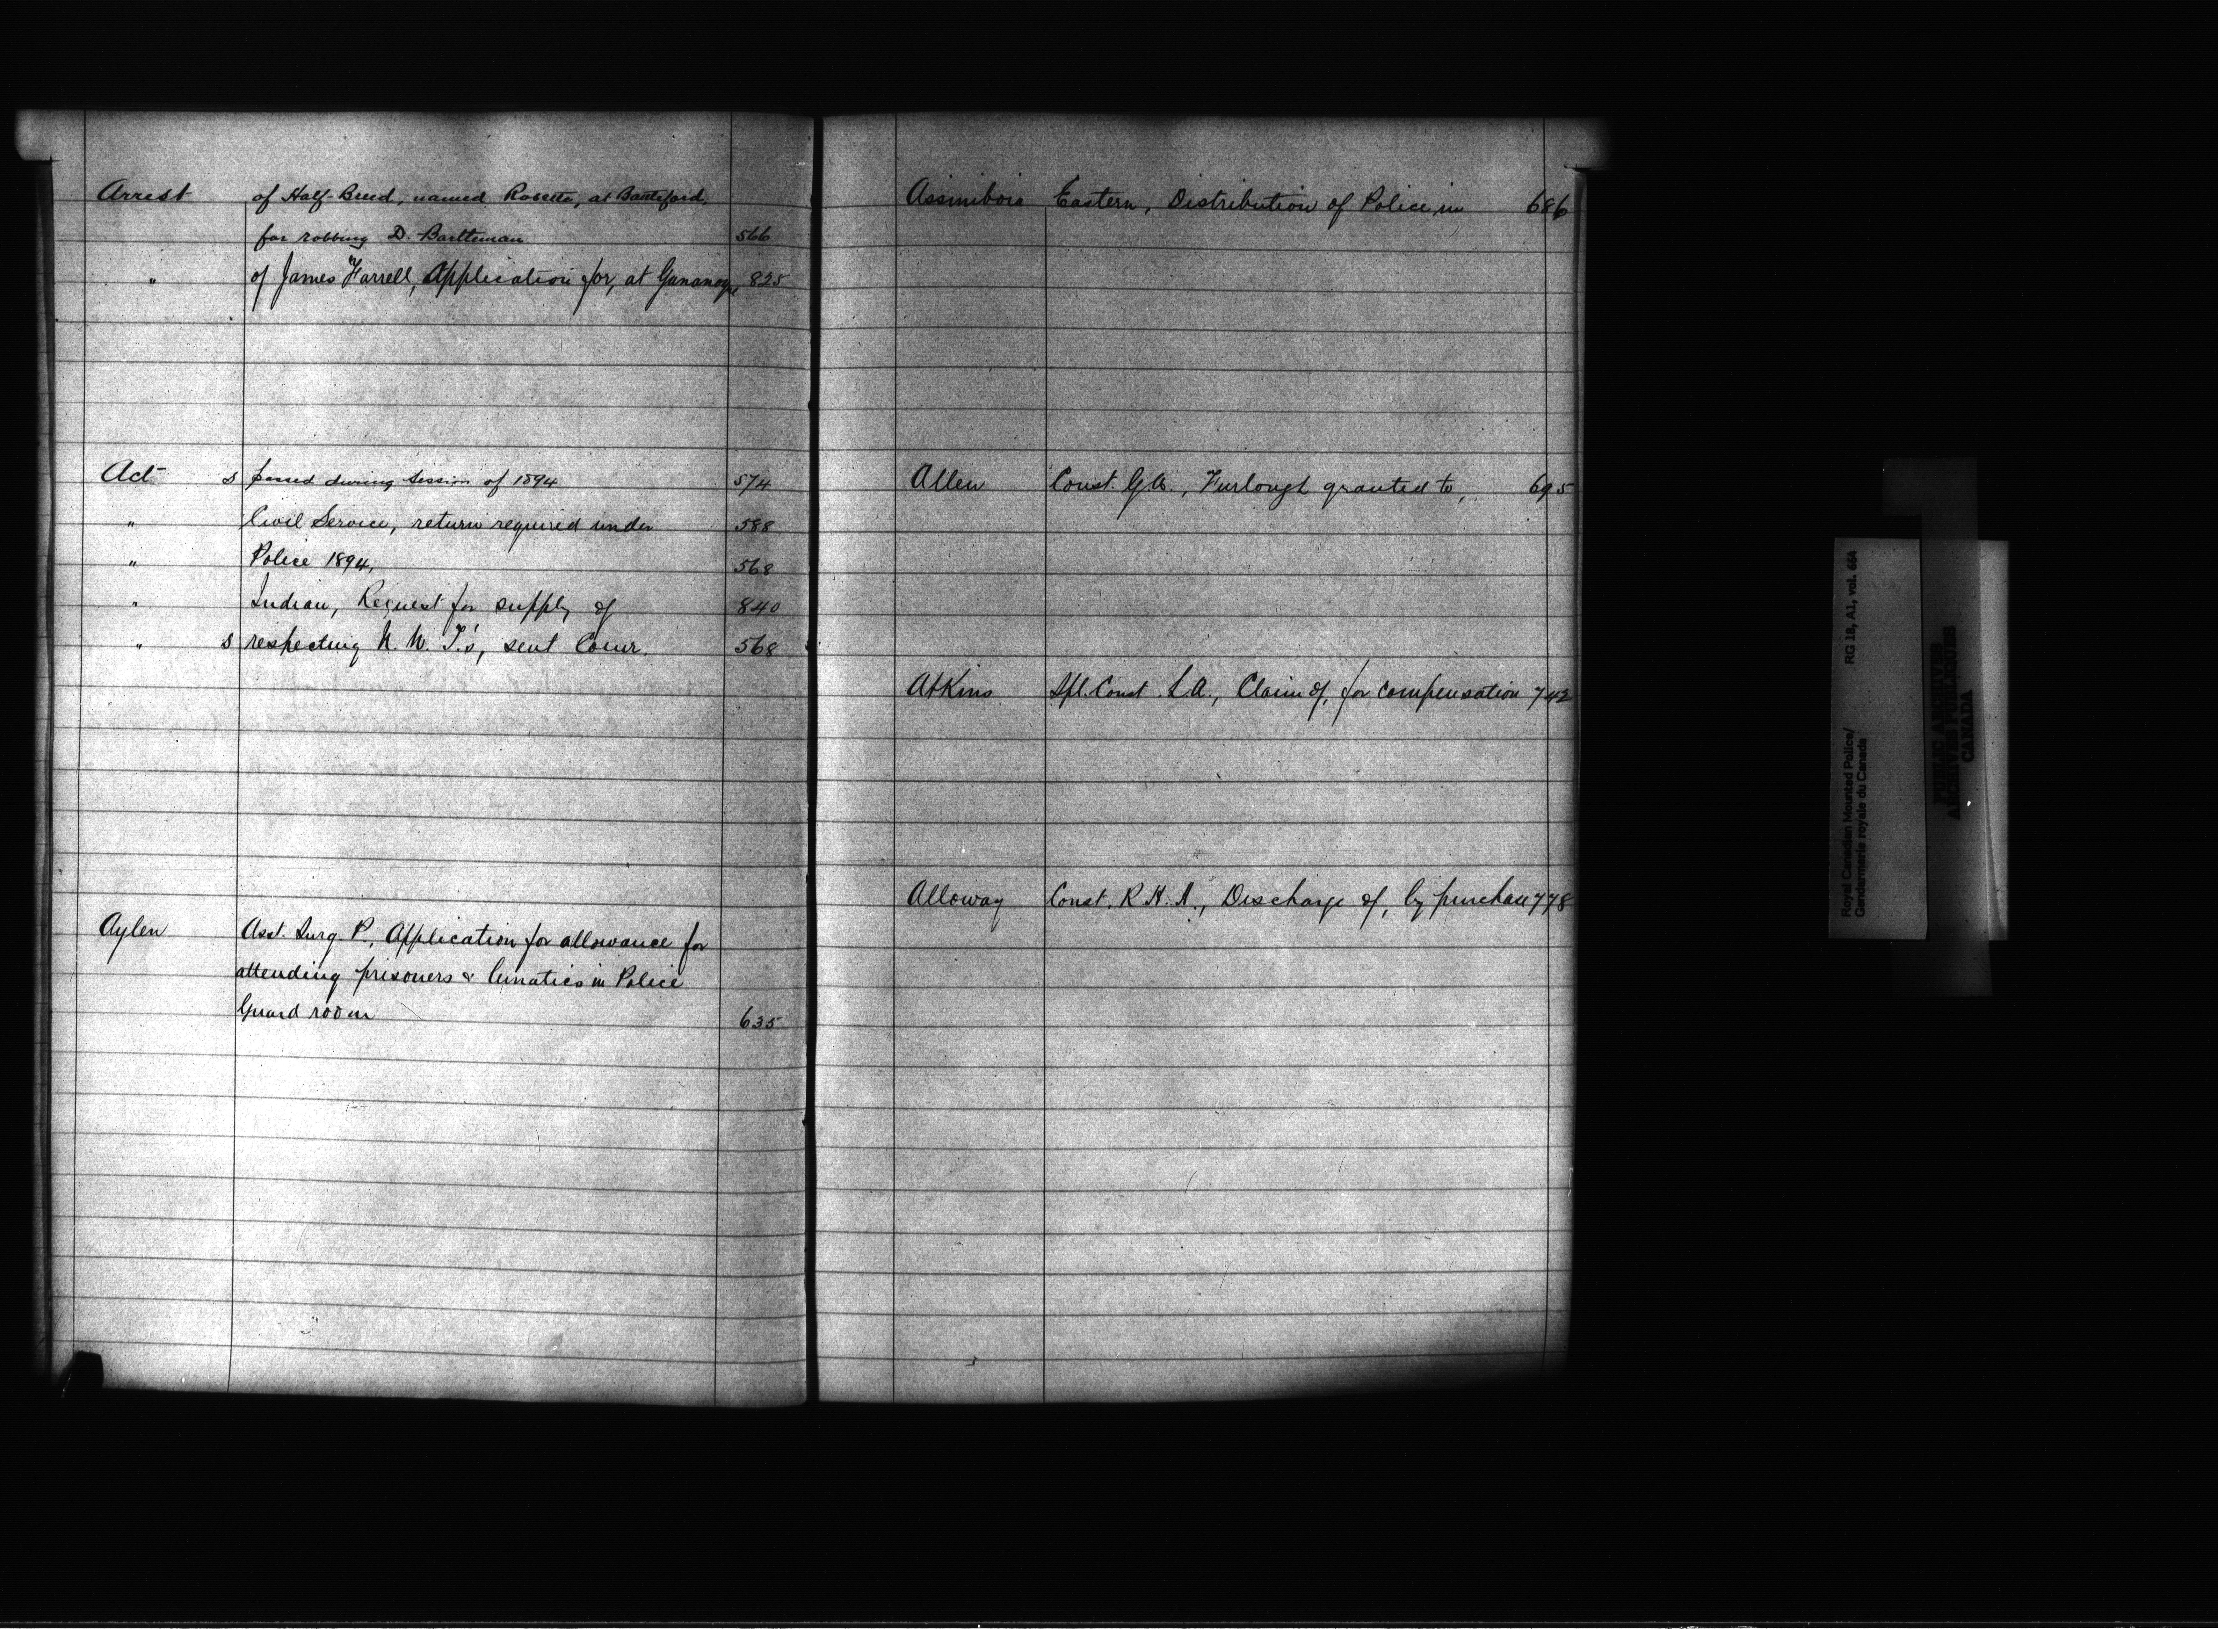 Arrest of Half-Breed, named at Battleford,
for robbing D. 566
" of James Farrell, Application for, at Gananoque 825
Act s passed during Session of 1894 574
" Civil Service, return required under 588
" Police 1894, 568
" Indian, Request for supply of 840
" s respecting N. W. T.'s, sent Comr. 568
Aylen Asst. Surg. P., Application for allowance for
attending prisoners & lunatics in Police
Guard room 635
Assiniboia Eastern, Distribution of Police in 686
Allen Const. Furlough granted to, 695
Atkins Spl. Const. Claim of, for compensation 742
Alloway Const. R. H. A., Discharge of, by purchase 778
Royal Canadian Mounted Police/
Gendarmerie royale du Canada
RG 18, A1, vol. 654
PUBLIC ARCHIVES
ARCHIVES PUBLIQUES
CANADA